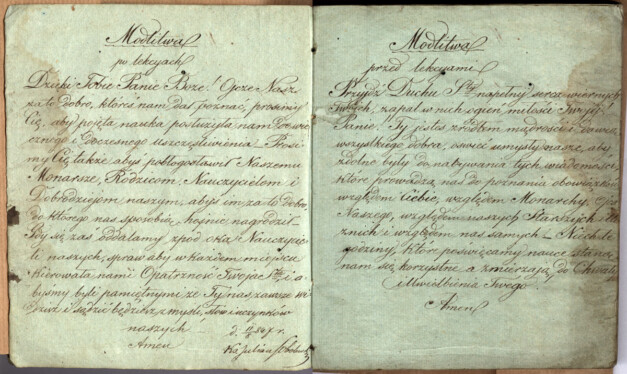 Modlitwa
po lekcyach
Dzięki Tobie Panie Boże! Ojcze Nasz
za to dobro, któreś nam dał poznać, prosimy
Cię, aby pojęta nauka posłużyła nam do wie
cznego i doczesnego uszczęśliwienia. Prosi
my Cię także abyś pobłogosławił Naszemu
Monarsze, Rodzicom, Nauczycielom i
Dobrodziejom naszym, abyś im za to dobro,
do którego nas sposobią, hojnie nagrodził
Gdy się zaś oddalamy zpod oka Nauczycie
li naszych, spraw aby w każdem miejscu
kierowała nami Opatrzność Twoja i a
byśmy byli pamiętnymi że Ty nas zawsze wi
dzisz i sądzić będziesz z myśli, słów i uczynków
naszych
Amen
Modlitwa
przed lekcyami
Przyjdź Duchu Sty napełnij serca wiernych
Twoich, zapal w nich ogień miłości Twojej
Panie, Ty jesteś źródłem mądrości i dawcą
wszystkiego dobra, oświeć umysły nasze, aby
zdolne były do nabywania tych wiadomości
które prowadzą nas do poznania obowiązków
względem Ciebie, względem Monarchy
Naszego, względem naszych Starszych
znich i względem nas samych. Niech te
godziny, które poświęcamy nauce staną
nam się korzystne a zmierzają do Chwały
i Uwielbienia Twego.
Amen